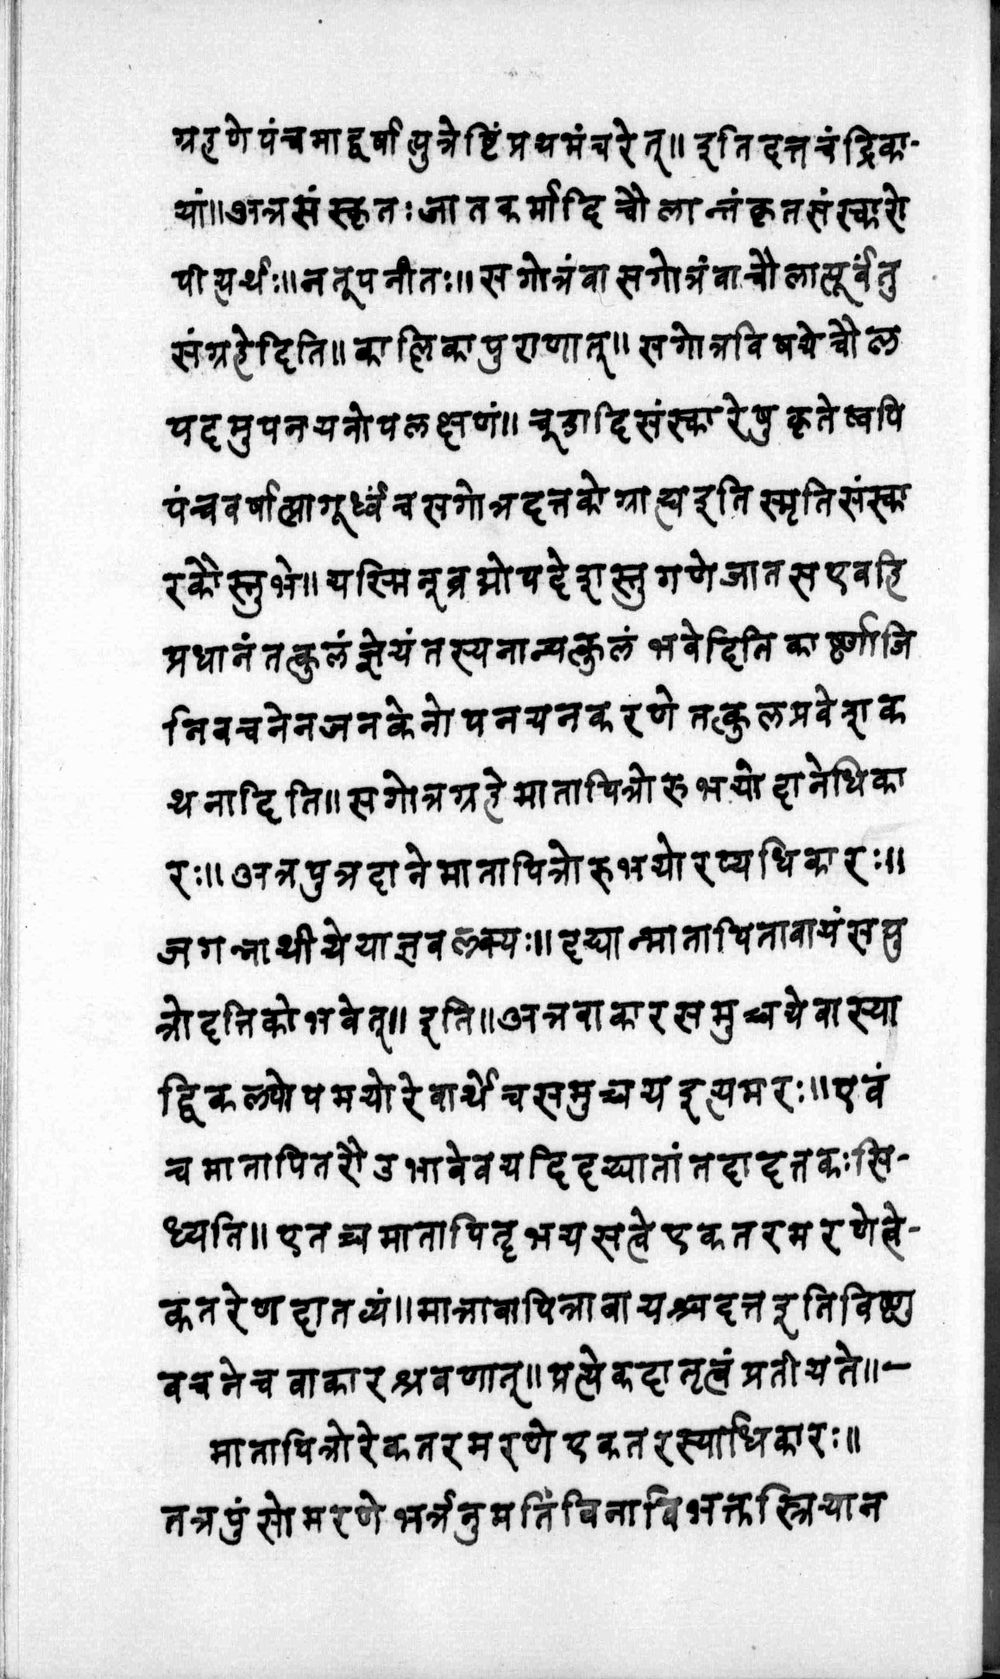 ग्रहणेपंचमाद्वर्षात्पुत्रेष्टिंप्रथमंचरेत्॥ इतिदत्तचंद्रिका-
यां॥अत्रसंस्कृतःजातकर्मादिचौलान्तंकृतसंस्कारो
पीत्यर्थः॥नतूपनीतः॥सगोत्रंवासगोत्रंवाचौलात्पूर्वंतु
संग्रहेदिति॥कालिकापुराणात्॥सगोत्रविषयेचौल
पदमुपनयनोपलक्षणं॥चूडादिसंस्कारेषुकृतेष्वपि
पंचवर्षात्प्रागूर्ध्वंचसगोत्रदत्तकोग्राह्यइतिस्मृतिसंस्का
रकौस्तुभे॥यस्मिन्ब्रह्मोपदेशस्तुगणेजातसएवहि
प्रधानंतत्कुलंज्ञेयंतस्यनान्यत्कुलंभवेदितिकार्ष्णाजि
निवचनेनजनकेनोपनयनकरणेतत्कुलप्रवेशक
थनादिति॥सगोत्रग्रहेमातापित्रोरुभयोदानेधिका
रः॥अत्रपुत्रदानेमातापित्रोरुभयोरप्यधिकारः॥
जगन्नाथीयेयाज्ञवल्क्यः॥दद्यान्मातापितावायंसपु
त्रोदत्तिकोभवेत्॥इति॥अत्रवाकारसमुच्चयेवास्या
द्विकल्पोपमयोरेवार्थेचसमुच्चयइत्यमरः॥एवं
चमातापितरौउभावेवयदिदद्यातांतदादत्तकःसि-
ध्यति॥एतच्चमातापितृभयसत्वेएकतरमरणेत्वे-
कतरेणदातव्यं॥मात्रावापित्रावायश्चदत्तइतिविष्णु
वचनेचवाकारश्रवणात्॥प्रत्येकदातृत्वंप्रतीयते॥—
मातापित्रोरेकतरमरणेएकतरस्याधिकारः॥
तत्रपुंसोमरणेभर्त्रनुमतिंविनाविभक्तस्त्रियान